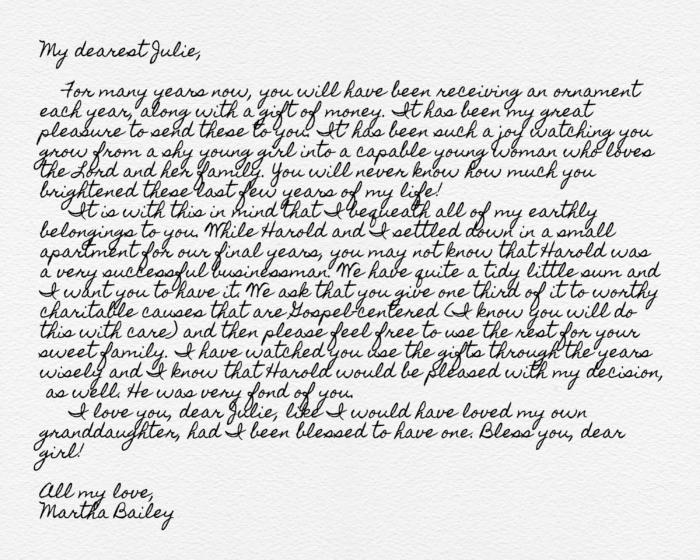 My dearest Julie,
For many years now, you will have been receiving an ornament
each year, along with a gift of money. It has been my great
pleasure to send these to you. It has been such a joy watching you
grow from a shy young girl into a capable young woman who loves
the Lord and her family. You will never know how much you
brightened these last few years of my life!
It is with this in mind that I bequeath all of my earthly
belongings to you. While Harold and I settled down in a small
apartment for our final years, you may not know that Harold was
a very successful businessman. We have quite a tidy little sum and
I want you to have it. We ask that you give one third of it to worthy
charitable causes that are Gospel-centered (I know you will do
this with care) and then please feel free to use the rest for your
sweet family. I have watched you use the gifts through the years
wisely and I know that Harold would be pleased with my decision,
as well. He was very fond of you.
I love you, dear Julie, like I would have loved my own
granddaughter, had I been blessed to have one. Bless you, dear
girl!
All my love,
Martha Bailey